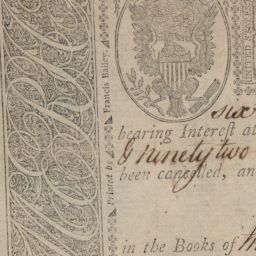 Printed by Francis Bailey.
six
bearing Interest at
& ninety two
been cancelled, an
in the Books of th